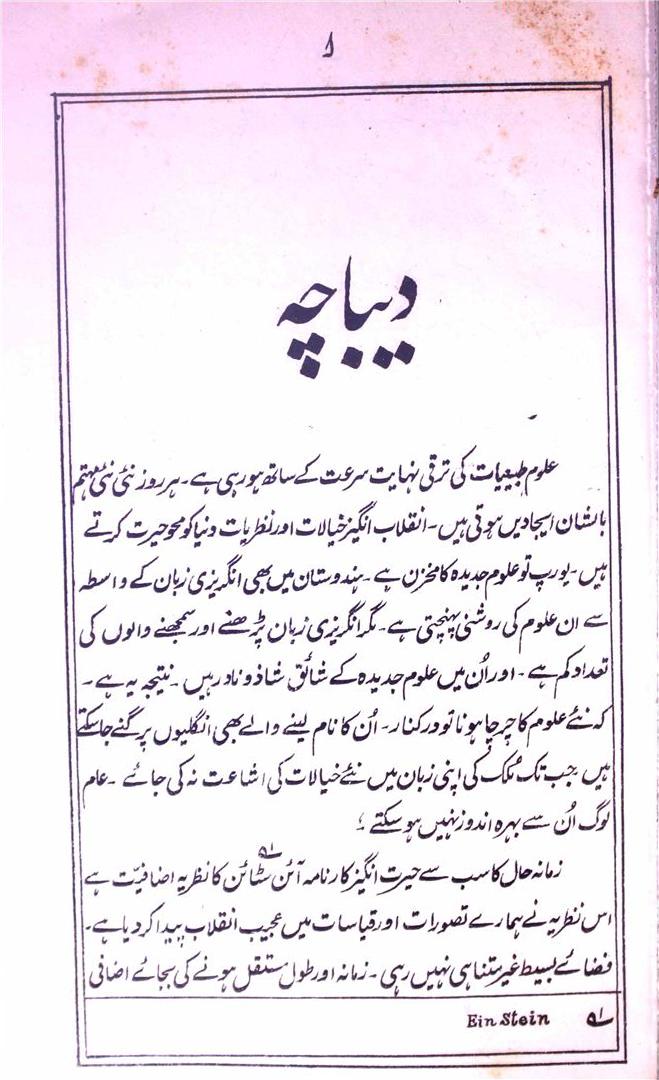 ۱
دیباچہ
علوم طبیعیات کی ترقی نہایت سرعت کے ساتھ ہو رہی ہے۔ ہر روز نئی نئی مہتم
بالشان ایجادیں ہوتی ہیں۔ انقلاب انگیز خیالات اور نظریات دنیا کو محو حیرت کرتے
ہیں۔ یورپ تو علوم جدیدہ کا مخزن ہے۔ ہندوستان میں بھی انگریزی زبان کے واسطہ
سے ان علوم کی روشنی پہنچتی ہے۔ مگر انگریزی زبان پڑھنے اور سمجھنے والوں کی
تعداد کم ہے۔ اور اُن میں علوم جدیدہ کے شائق شاذ و نادر ہیں۔ نتیجہ یہ ہے۔
کہ نئے علوم کا چرچا ہونا تو درکنار۔ اُن کا نام لینے والے بھی انگلیوں پر گنے جا سکتے
ہیں جب تک مُلک کی اپنی زبان میں نئے خیالات کی اشاعت نہ کی جائے۔ عام
لوگ اُن سے بہرہ اندوز نہیں ہو سکتے ؛
زمانہ حال کا سب سے حیرت انگیز کارنامہ آئن سٹائن ؎۱ کا نظریہ اضافیّت ہے
اس نظریہ نے ہمارے تصورات اور قیاسات میں عجیب انقلاب پیدا کر دیا ہے۔
فضائے بسیط غیر متناہی نہیں رہی۔ زمانہ اور طول مستقل ہونے کی بجائے اضافی
؎۱ Ein Stein